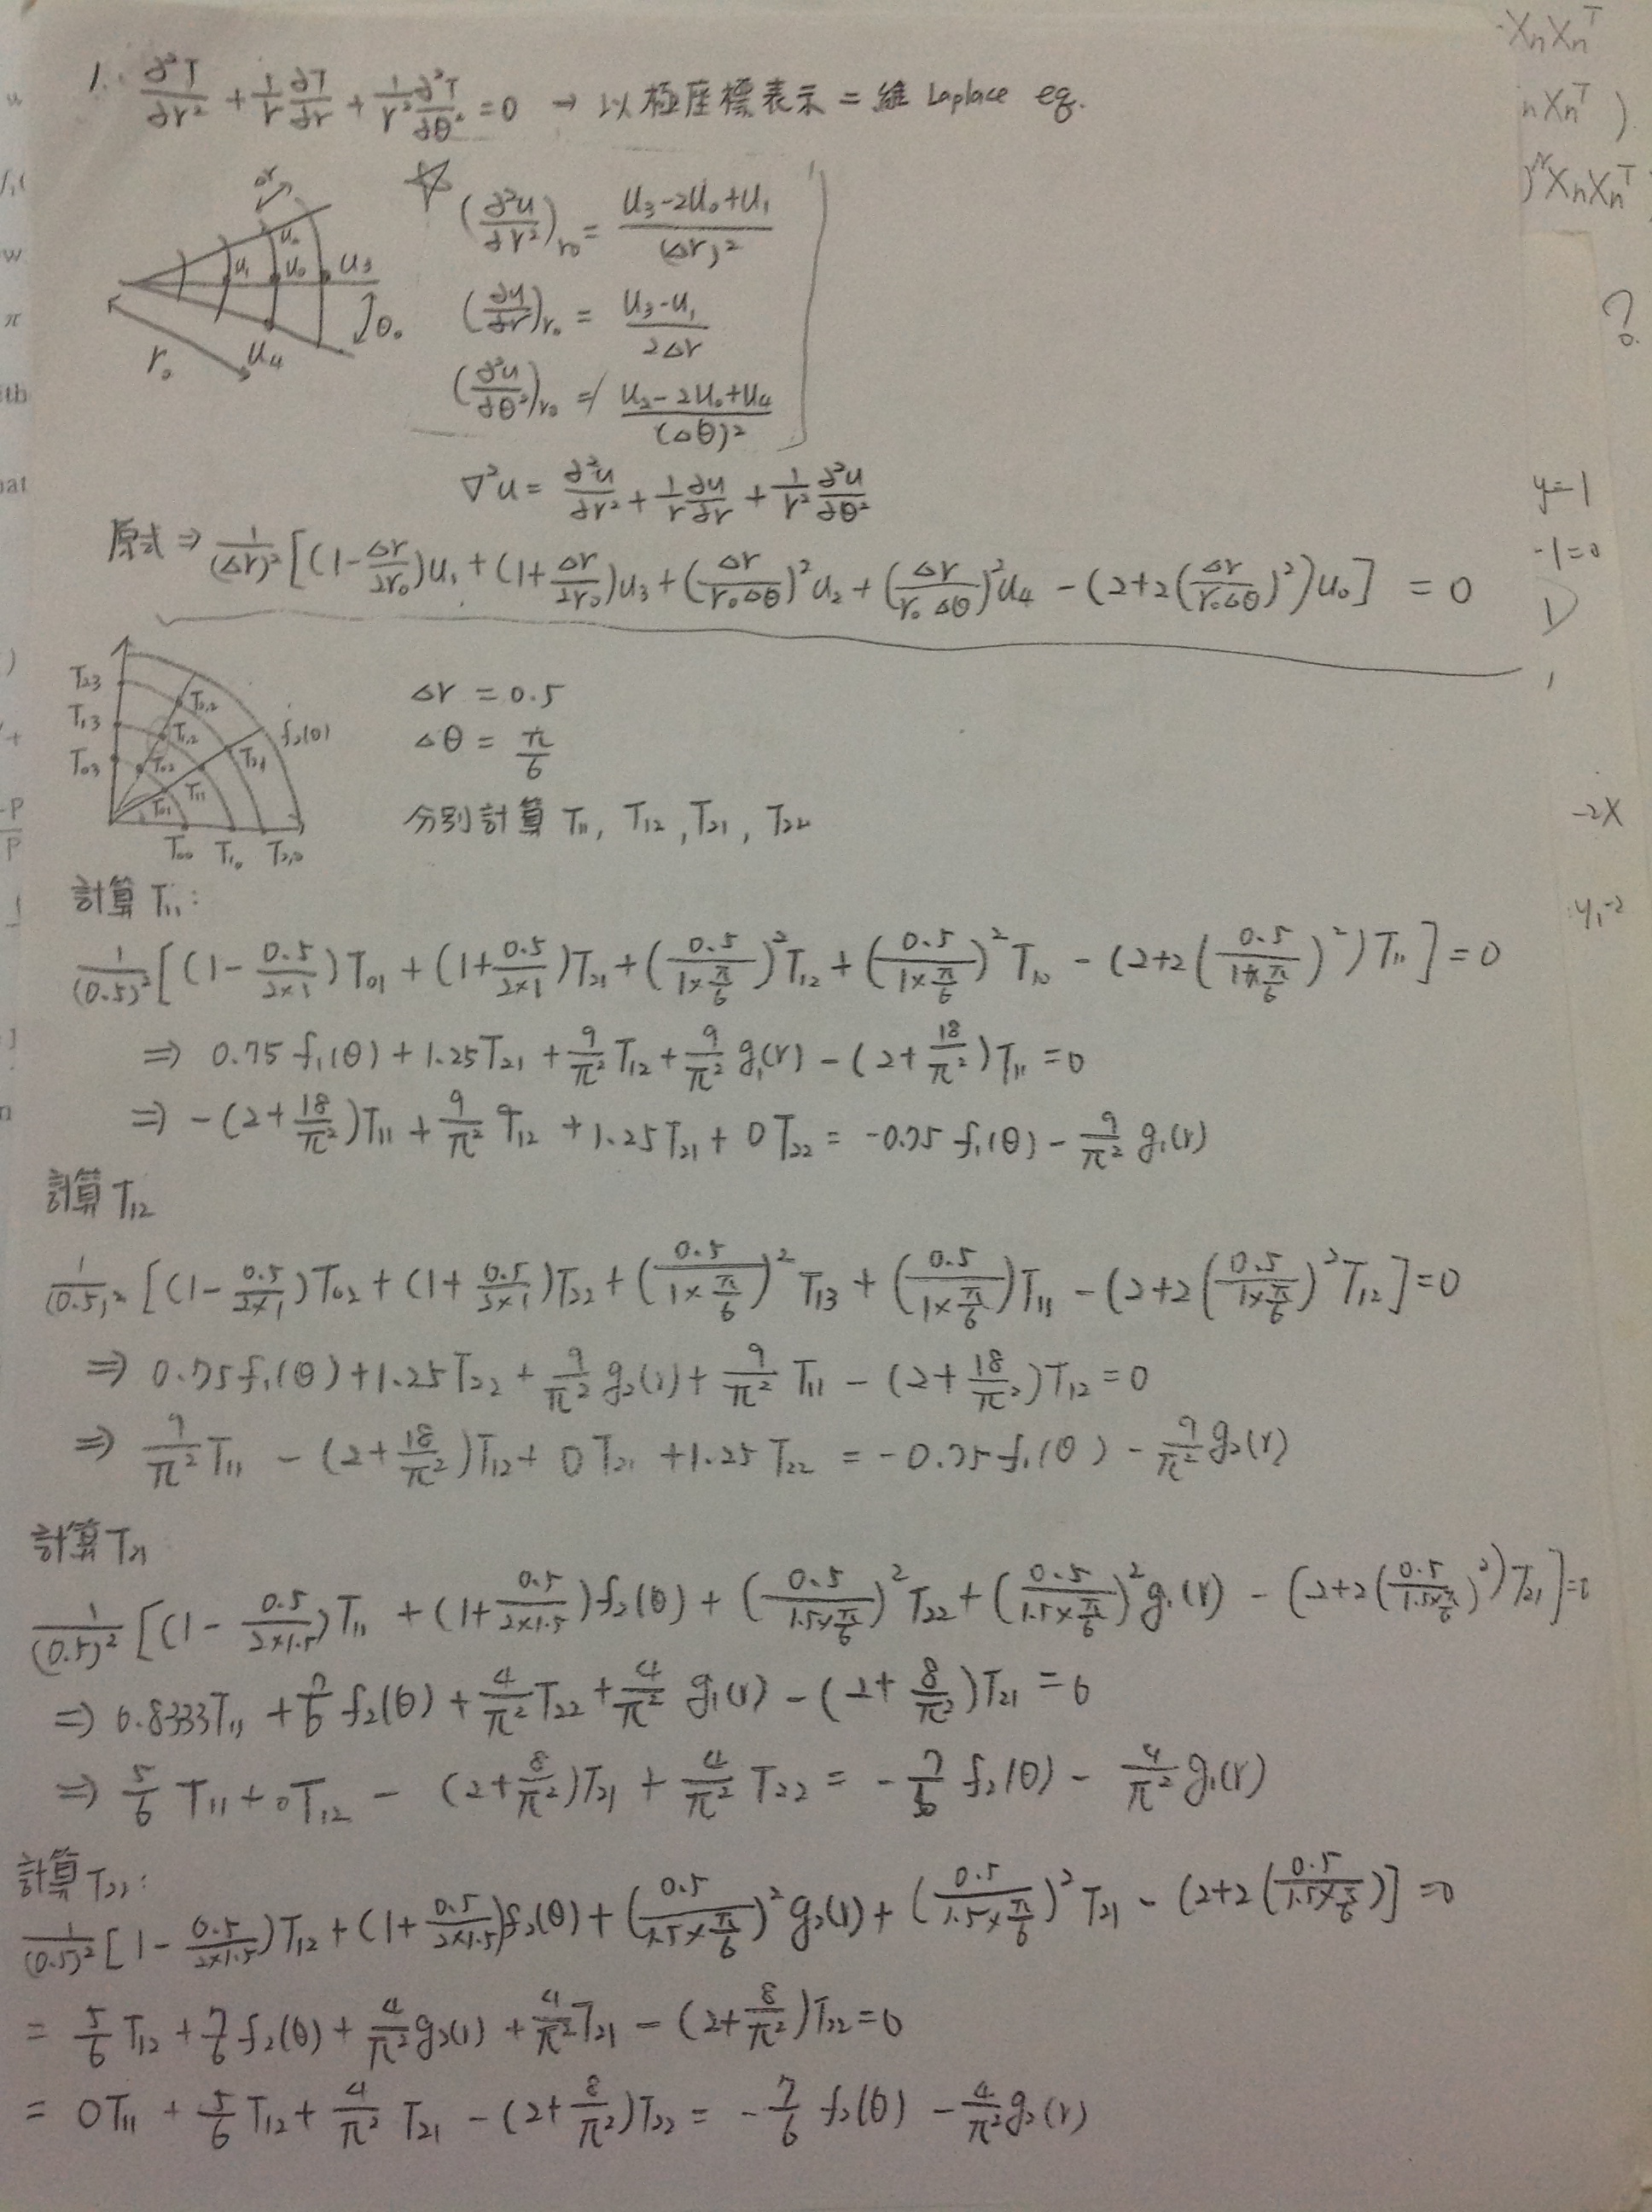 1. ∂²T/∂r² + 1/r ∂T/∂r + 1/r² ∂²T/∂θ² = 0 → 以極座標表示二維 Laplace eq.
Δr
u₀
u₁ u₀ u₃
θ₀
r₀ u₄
☆ (∂²u/∂r²)r₀ = (u₃-2u₀+u₁)/(Δr)²
(∂u/∂r)r₀ = (u₃-u₁)/(2Δr)
(∂²u/∂θ²)r₀ = (u₂-2u₀+u₄)/(Δθ)²
∇²u = ∂²u/∂r² + 1/r ∂u/∂r + 1/r² ∂²u/∂θ²
原式 ⇒ 1/(Δr)² [(1-Δr/2r₀)u₁ + (1+Δr/2r₀)u₃ + (Δr/r₀Δθ)²u₂ + (Δr/r₀Δθ)²u₄ - (2+2(Δr/r₀Δθ)²)u₀] = 0
T₂₃ T₂₂
T₁₃ T₁₂ f₂(θ)
T₀₃ T₀₂ T₂₁
T₀₁ T₁₁
T₀₀ T₁₀ T₂,₀
Δr = 0.5
Δθ = π/6
分別計算 T₁₁, T₁₂, T₂₁, T₂₂
計算 T₁₁:
1/(0.5)² [(1-0.5/2×1)T₀₁ + (1+0.5/2×1)T₂₁ + (0.5/1×π/6)²T₁₂ + (0.5/1×π/6)²T₁₀ - (2+2(0.5/1×π/6)²)T₁₁] = 0
⇒ 0.75 f₁(θ) + 1.25T₂₁ + 9/π² T₁₂ + 9/π² g₁(r) - (2+18/π²)T₁₁ = 0
⇒ -(2+18/π²)T₁₁ + 9/π² T₁₂ + 1.25T₂₁ + 0T₂₂ = -0.75 f₁(θ) - 9/π² g₁(r)
計算 T₁₂
1/(0.5)² [(1-0.5/2×1)T₀₂ + (1+0.5/2×1)T₂₂ + (0.5/1×π/6)²T₁₃ + (0.5/1×π/6)T₁₁ - (2+2(0.5/1×π/6)²T₁₂] = 0
⇒ 0.75f₁(θ) + 1.25T₂₂ + 9/π² g₂(r) + 9/π² T₁₁ - (2+18/π²)T₁₂ = 0
⇒ 9/π² T₁₁ - (2+18/π²)T₁₂ + 0T₂₁ + 1.25T₂₂ = -0.75f₁(θ) - 9/π² g₂(r)
計算 T₂₁
1/(0.5)² [(1-0.5/2×1.5)T₁₁ + (1+0.5/2×1.5)f₂(θ) + (0.5/1.5×π/6)²T₂₂ + (0.5/1.5×π/6)²g₁(r) - (2+2(0.5/1.5×π/6)²)T₂₁] = 0
⇒ 0.8333T₁₁ + 7/6 f₂(θ) + 4/π² T₂₂ + 4/π² g₁(r) - (2+8/π²)T₂₁ = 0
⇒ 5/6 T₁₁ + 0T₁₂ - (2+8/π²)T₂₁ + 4/π² T₂₂ = -7/6 f₂(θ) - 4/π² g₁(r)
計算 T₂₂:
1/(0.5)² [1-0.5/2×1.5)T₁₂ + (1+0.5/2×1.5)f₂(θ) + (0.5/1.5×π/6)²g₂(r) + (0.5/1.5×π/6)²T₂₁ - (2+2(0.5/1.5×π/6)] = 0
= 5/6 T₁₂ + 7/6 f₂(θ) + 4/π² g₂(r) + 4/π² T₂₁ - (2+8/π²)T₂₂ = 0
= 0T₁₁ + 5/6 T₁₂ + 4/π² T₂₁ - (2+8/π²)T₂₂ = -7/6 f₂(θ) - 4/π² g₂(r)
-XnXnᵀ
nXnᵀ )
XnXnᵀ
?
y=1
-1=0
-2X